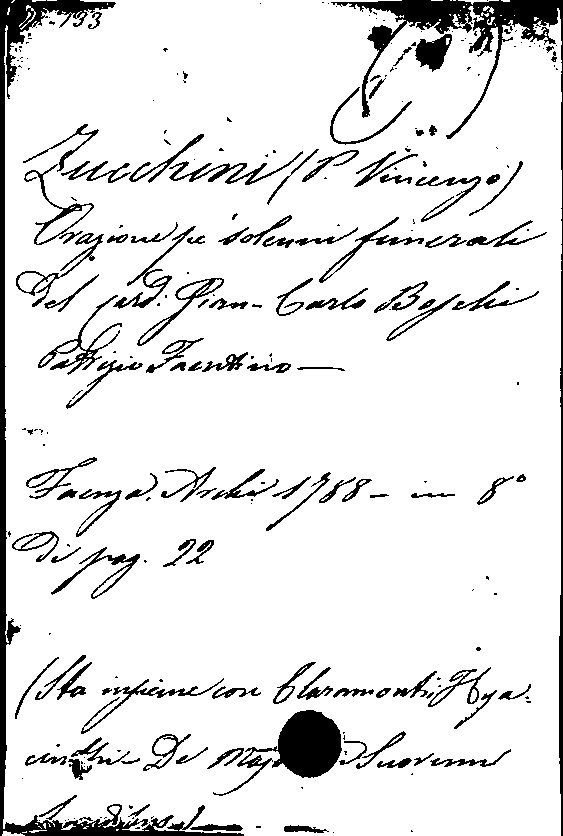 133
Zucchini (P. Vincenzo)
Orazione pe' solenni funerali
del Card: Gian-Carlo Boschi
Patrizio Faentino —
Faenza. Archi 1788 — in 8°
di pag. 22
(Sta insieme con Claramontii Hya-
cinthi De Maj Suorum
Laudibus)